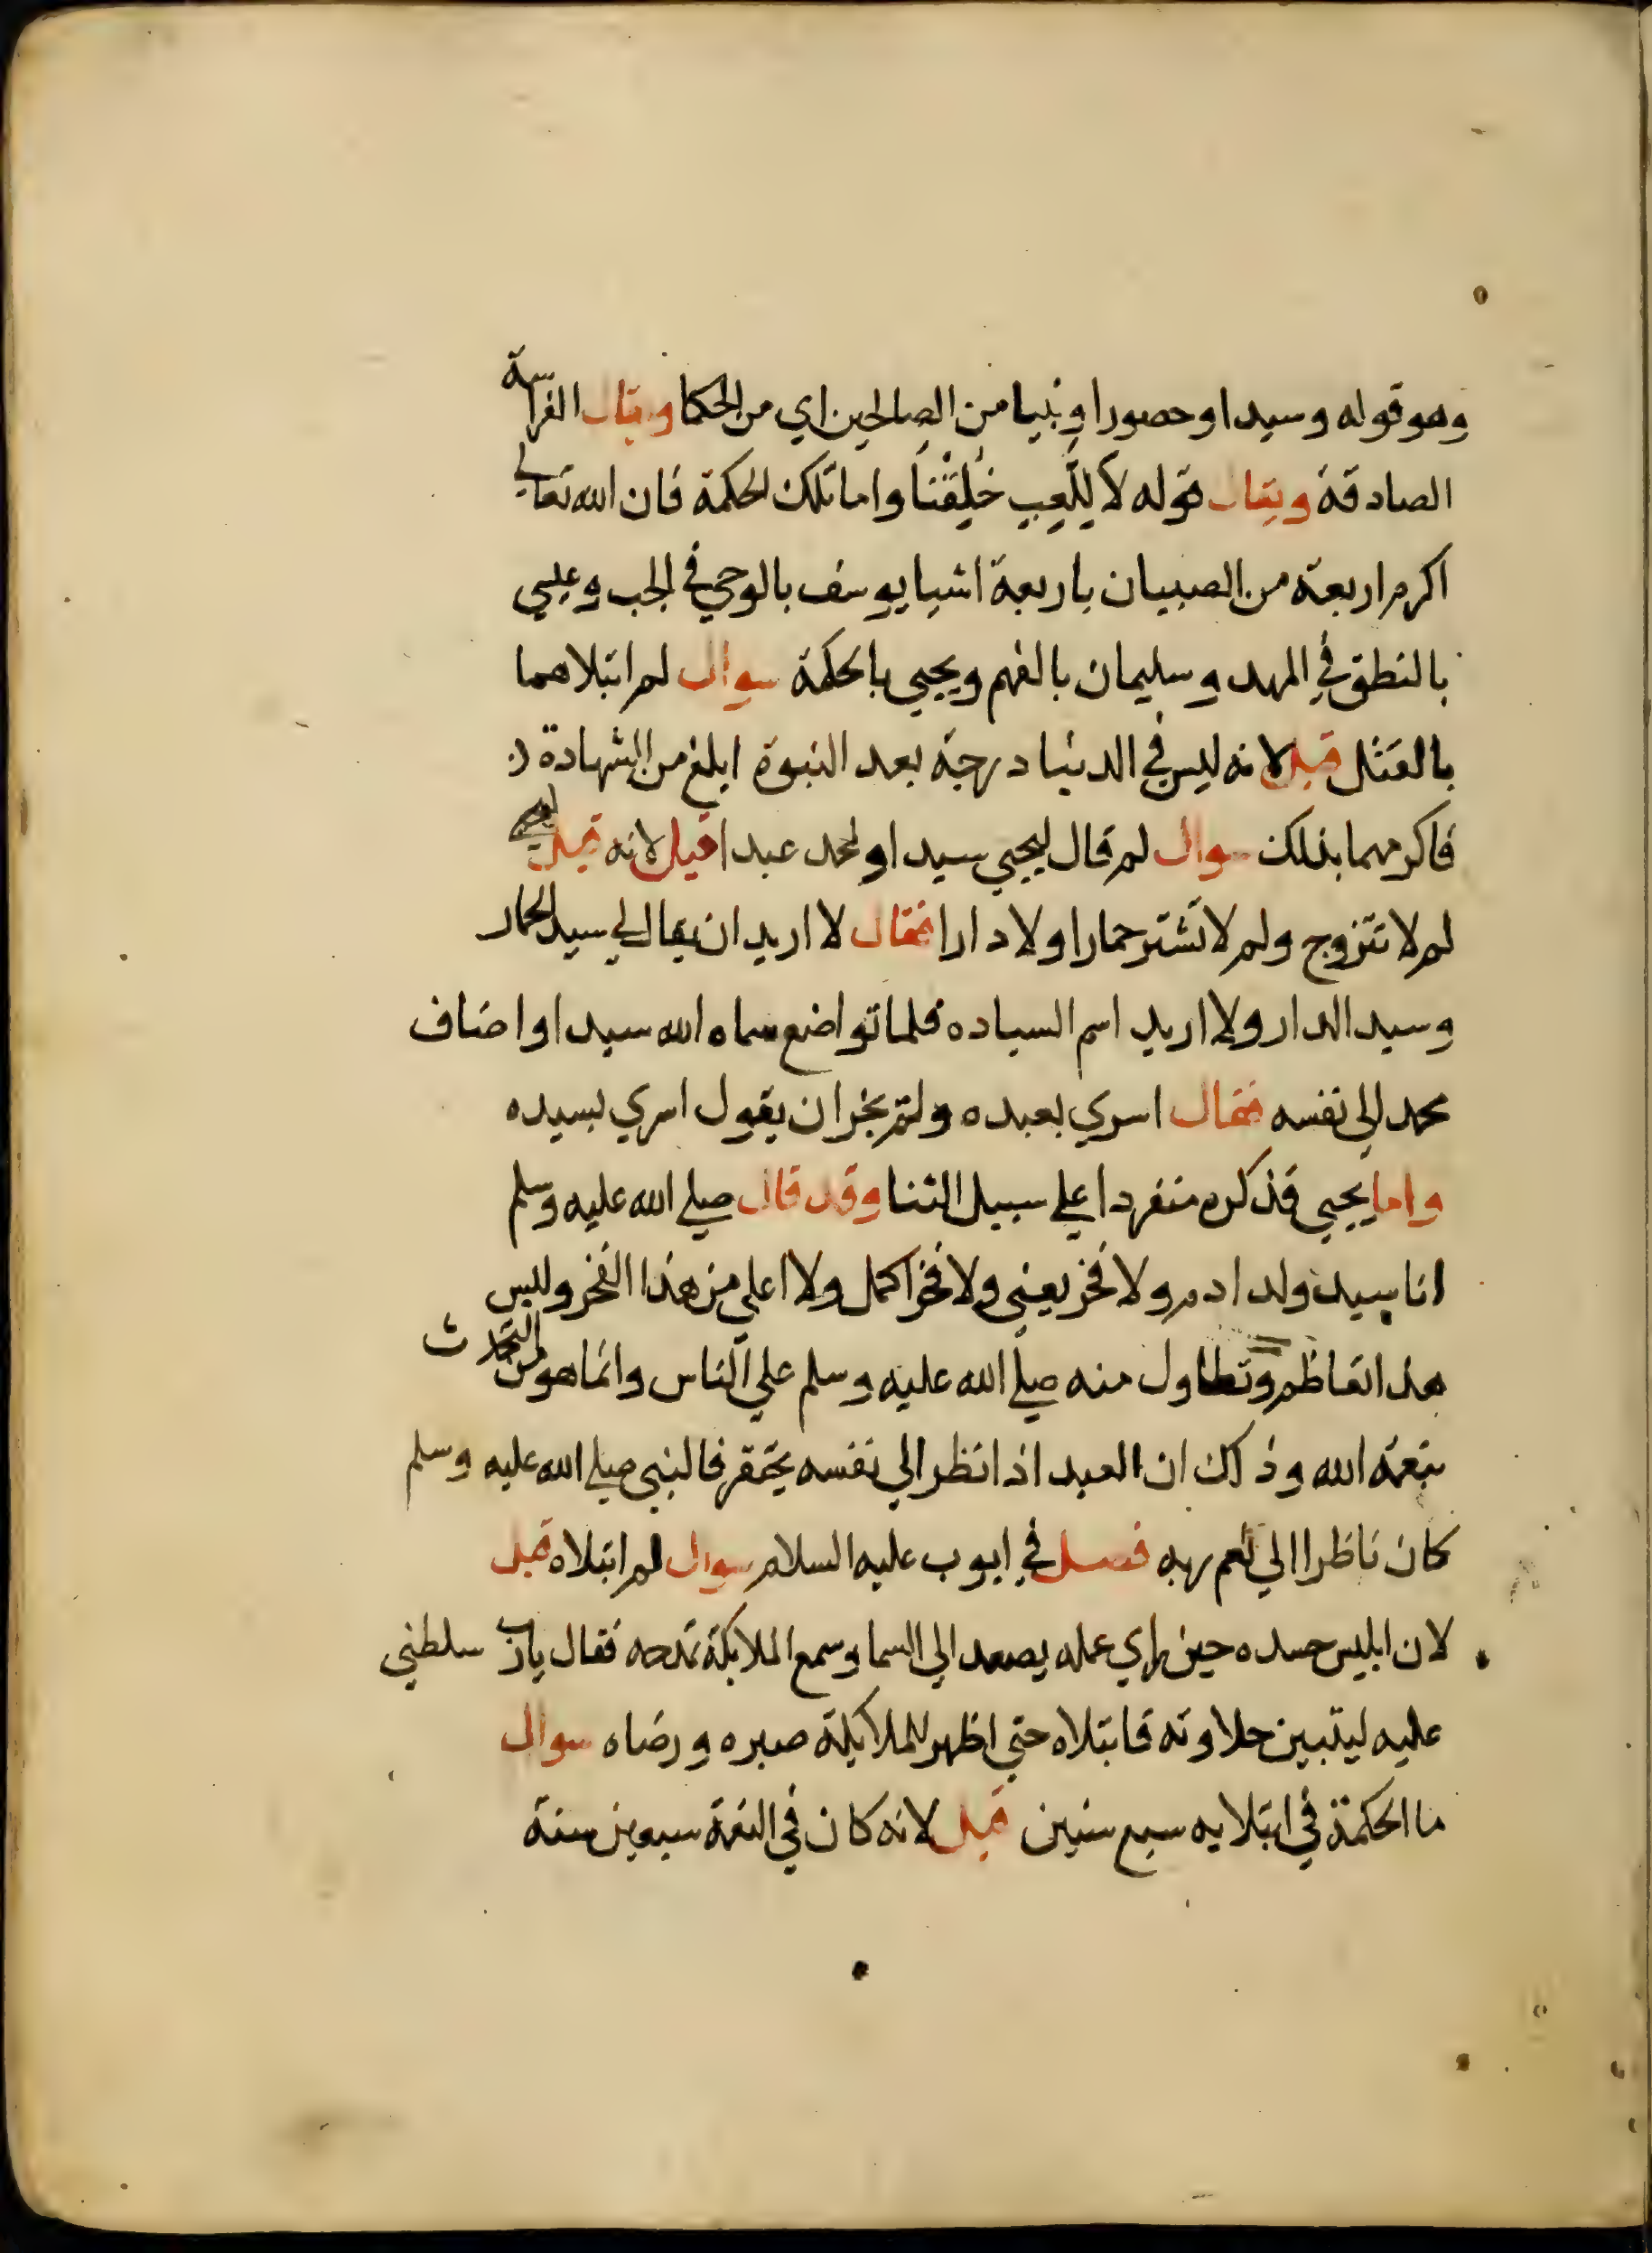 وهو قوله وسيدا وحصورا ونبيا من الصالحين اي من الحكما ويقال الفراسة
الصادقة ويقال قوله لا لِلَّعِبِ خُلِقْنَا واما تلك الحكمة فان الله تعالي
اكرم اربعة من الصبيان باربعة اشيا يوسف بالوحي في الجب وعيسي
بالنطق في المهد وسليمان بالفهم ويحيي بالحكمة سوال لم ابتلاهما
بالقتل قيل لانه ليس في الدنيا درجة بعد النبوة ابلغ من الشهادة
فاكرمهما بذلك سوال لم قال ليحيي سيدا ولمحمد عبدا قيل لانه قيل ليحيي
لم لا تتزوج ولم لا تشتر حمارا ولا دارا فقال لا اريد ان يقال لي سيد الحمار
وسيد الدار ولا اريد اسم السياده فلما تواضع سماه الله سيدا واضاف
محمد الي نفسه فقال اسري بعبده ولم يجز ان يقول اسري بسيده
واما يحيي فذكره منفردا علي سبيل الثنا وقد قال صلي الله عليه وسلم
انا سيد ولد ادم ولا فخر يعني ولا فخر اكمل ولا اعلي من هذا الفخر وليس
هذا تعاظم وتطاول منه صلي الله عليه وسلم علي الناس وانما هو من التحدث
بنعمة الله وذلك ان العبد اذا نظر الي نفسه يحتقر فالنبي صلي الله عليه وسلم
كان ناظرا الي نعم ربه فصل في ايوب عليه السلام سوال لم ابتلاه قيل
لان ابليس حسده حين راي عمله يصعد الي السما وسمع الملايكة تمدحه فقال يا رب سلطني
عليه ليتبين حلاوته فابتلاه حتي اظهر للملايكة صبره ورضاه سوال
ما الحكمة في ابتلايه سبع سنين قيل لانه كان في النعمة سبعين سنة